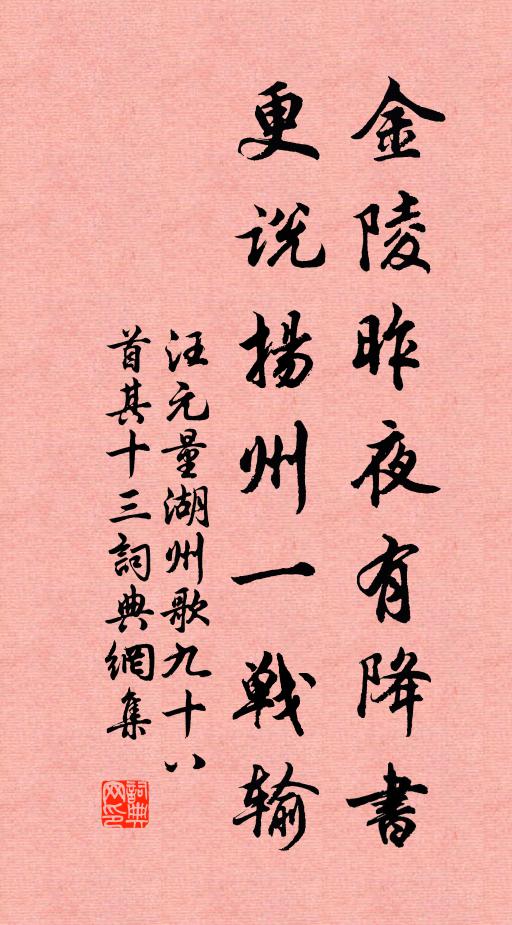 金陵昨夜有降書
更说揚州一戦输
汪元量湖州歌九十八
首其十三詞典網集
詞典
网印